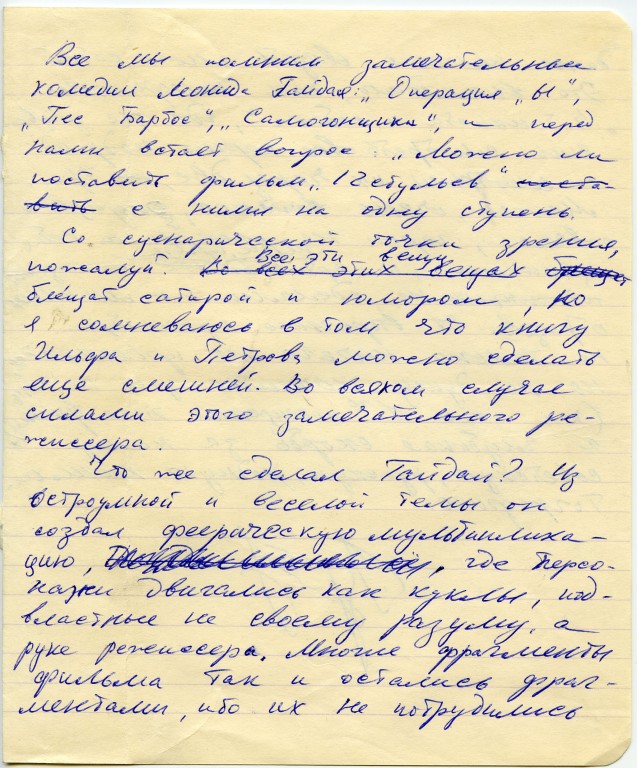 Все мы помним замечательные
комедии Леонида Гайдая: „Операция „Ы",
„Пес Барбос", „Самогонщики", и перед
нами встает вопрос „Можно ли
поставить фильм „12 стульев" поста-
вить с ними на одну ступень.
Со сценарической точки зрения,
Все эти вещи
пожалуй. Во всех этих вещах
блещат сатирой и юмором, но
я сомневаюсь в том что книгу
Ильфа и Петрова можно сделать
еще смешней. Во всяком случае
силами этого замечательного ре-
жиссера.
Что же сделал Гайдай? Из
остроумной и веселой темы он
создал феерическую мультиплика-
цию, где персо-
нажи двигались как куклы, под-
властные не своему разуму, а
руке режиссера. Многие фрагменты
фильма так и остались фраг-
ментами, ибо их не потрудились